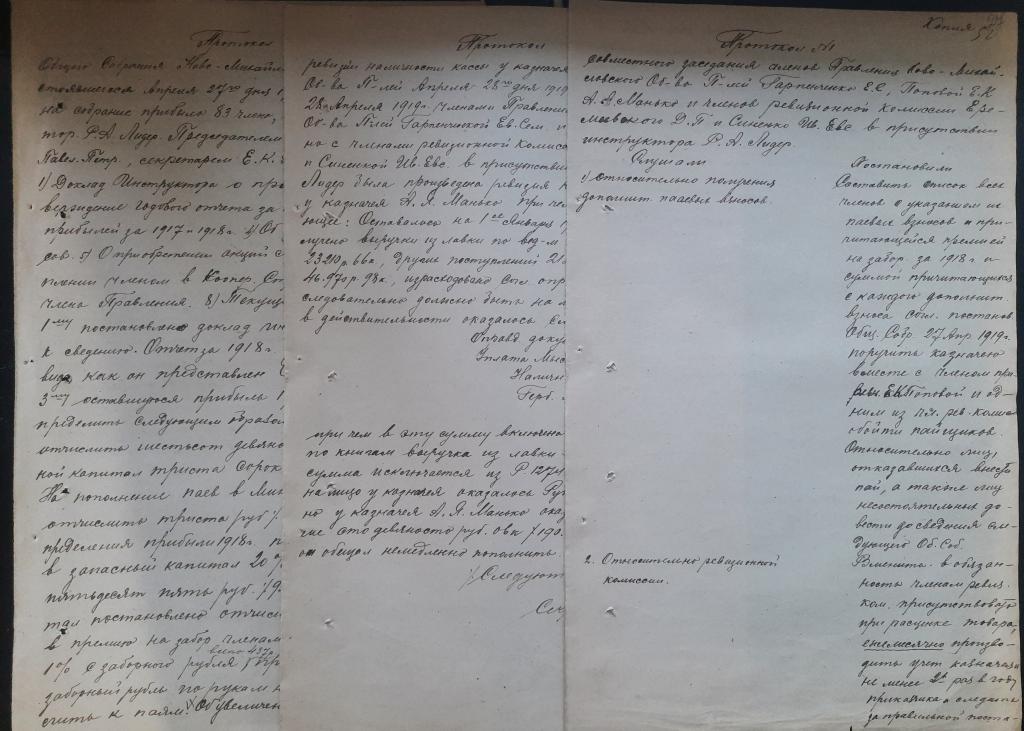 Протокол
Общего Собрания Ново-Михайл
стоявшегося Апреля 27го дня 1
на собрание прибыло 83 член,
тор. Р.А. Лидер. Председателем
Павел. Петр., секретарем Е.К.
1) Доклад Инструктора о пр
верждение годового отчета за
прибылей за 1917 и 1918г. 4) Об
сов. 5) О приобретении акций с
плении членом в Коопер. Со
члена Правления. 8) Текущ
1му постановлено доклад ин
к сведению. Отчет за 1918г.
вида как он представлен
3му оставшуюся прибыль 1
пределить следующим образом
отчислить шестьсот девяно
ной капитал триста сорок
На пополнение паев в Мин
отчислить триста руб.
пределения прибыли 1918г. п
в запасный капитал 20%
пятьдесят пять руб. /9
тал постановлено отчис
в премию на забор членам
всего 457р
1% с заборного рубля
заборный рубль по рукам н
счить к паям. Об увеличен
Протокол
ревизии наличности кассы у казначея
Об-ва П-лей Апреля 28го дня 1919
28го Апреля 1919г. членами Правления
Об-ва П-лей Гарпенчинкой Ев. Сем. и
но с членами ревизионной комисси
и Синенкой Ив. Евс. в присутстви
Лидер была произведена ревизия к
у казначея А.Я. Манько при чем
ющее: Оставалось на 1ое Января 1
лучено выручки из лавки по вед-м
23210р. 66к, другие поступлений 21
46.970р. 98к, израсходовано согл. опр
следовательно должно быть на л
в действительности оказалось сл
Оправд доку
Уплата Мыс
Наличн
Герб.
при чем в эту сумму включено
по книгам выручка из лавки
сумма исключается из Р 1274
на лицо у казначея оказалось Ру
но у казначея А.Я. Манько ока
чие сто девяносто руб. 08к /190.
он обещал немедленно пополнить
/Следуют
Сек
Копия
Протокол №1
совместного заседания членов Правления Ново-Михай-
ловского Об-ва П-лей Гарпенченко Е.С, Поповой Е.К
А.Я. Манько и членов ревизионной комиссии Ере-
мивского Д.П и Синенко Ив. Евс в присутствии
инструктора Р.А. Лидер.
Слушали
1) относительно получения
дополнит. паевых взносов.
2. Относительно ревизионной
комиссии.
Постановили
Составить список всех
членов с указанием их
паевых взносов и при-
читающейся премией
на забор. за 1918г. и
суммой причитающихся
с каждого дополнит.
взноса согл. постанов.
Общ. Собр. 27 Апр 1919г.
поручить казначею
вместе с членом пра-
вл. Е.К. Поповой и од-
ним из чл. рев. комис
обойти пайщиков.
Относительно лиц,
отказавшихся внести
пай, а также лиц
несостоятельных до-
вести до сведения сле-
дующего Об. Соб.
Вменить в обязан-
ность членам ревиз.
ком. присутствовать
при расценке товара,
ежемесячно произво-
дить учет казначея
не менее 2х раз в году
прикащика и следить
за правильной поста-